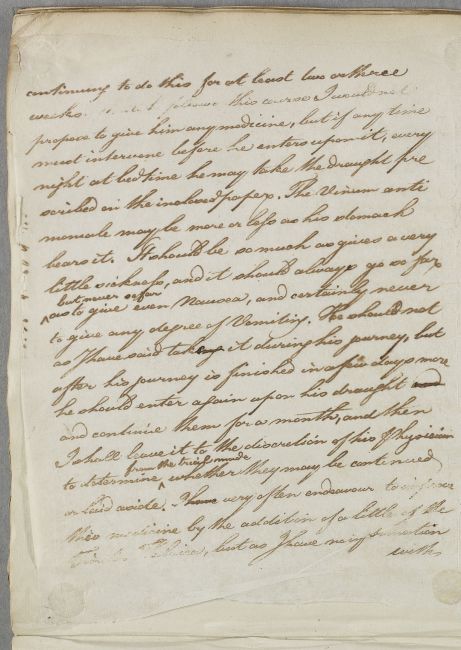 continuing to do this for at least two or three
weeks. this course I would not
propose to give him any medicine, but if any time
must intervene before he enters upon it, every
night at bedtime he may take the draught pre
scribed in the inclosed paper. The Vinum anti
moniale may be more or less as his stomach
bears it. It should be so much as gives a very
little sickness, and it should always go so far
but never so far
as to give even Nausea, and certainly never
to give any degree of Vomiting. He should not
as I have said take it during his journey, but
after his journey is finished in a few days more
he should enter again upon his draught and
and continue them for a month, and then
I shall leave it to the discretion of his Physician
from the trial made
to determine whether they may be continued
or laid aside. I have very often endeavour to improve
this medicine by the addition of a little of the
but as I have no information
with